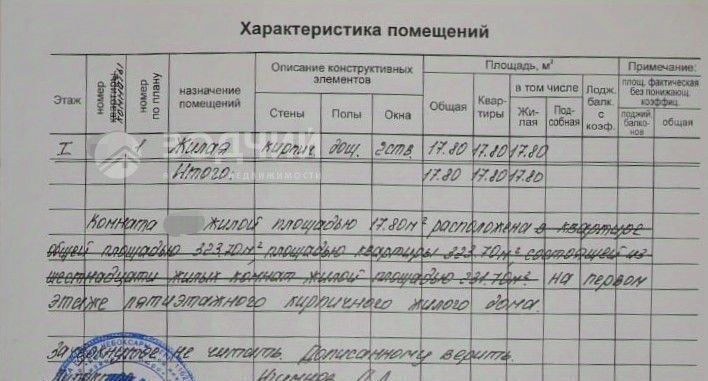 Характеристика помещений
Этаж
номер квартиры комнаты
номер по плану
назначение помещений
Описание конструктивных элементов
Стены
Полы
Окна
Площадь, м²
Общая
Квартиры
в том числе
Жилая
Подсобная
Лодж. балк. с коэф.
Примечание:
площ. фактическая без понижающ. коэффиц.
лоджий, балконов
общая
I 1 Жилая кирпич. дощ. 2 ств. 17.80 17.80 17.80
Итого. 17.80 17.80 17.80
ЗОДЧИЙ
НЕДВИЖИМОСТИ
Комната жилой площадью 17.80 м² расположена в квартире
общей площадью 323.70 м², площадью квартиры 323.70 м² состоящей из
шестнадцати жилых комнат жилой площадью 231.70 м². на первом
этаже пятиэтажного кирпичного жилого дома.
Зачеркнутое не читать. Дописанному верить.